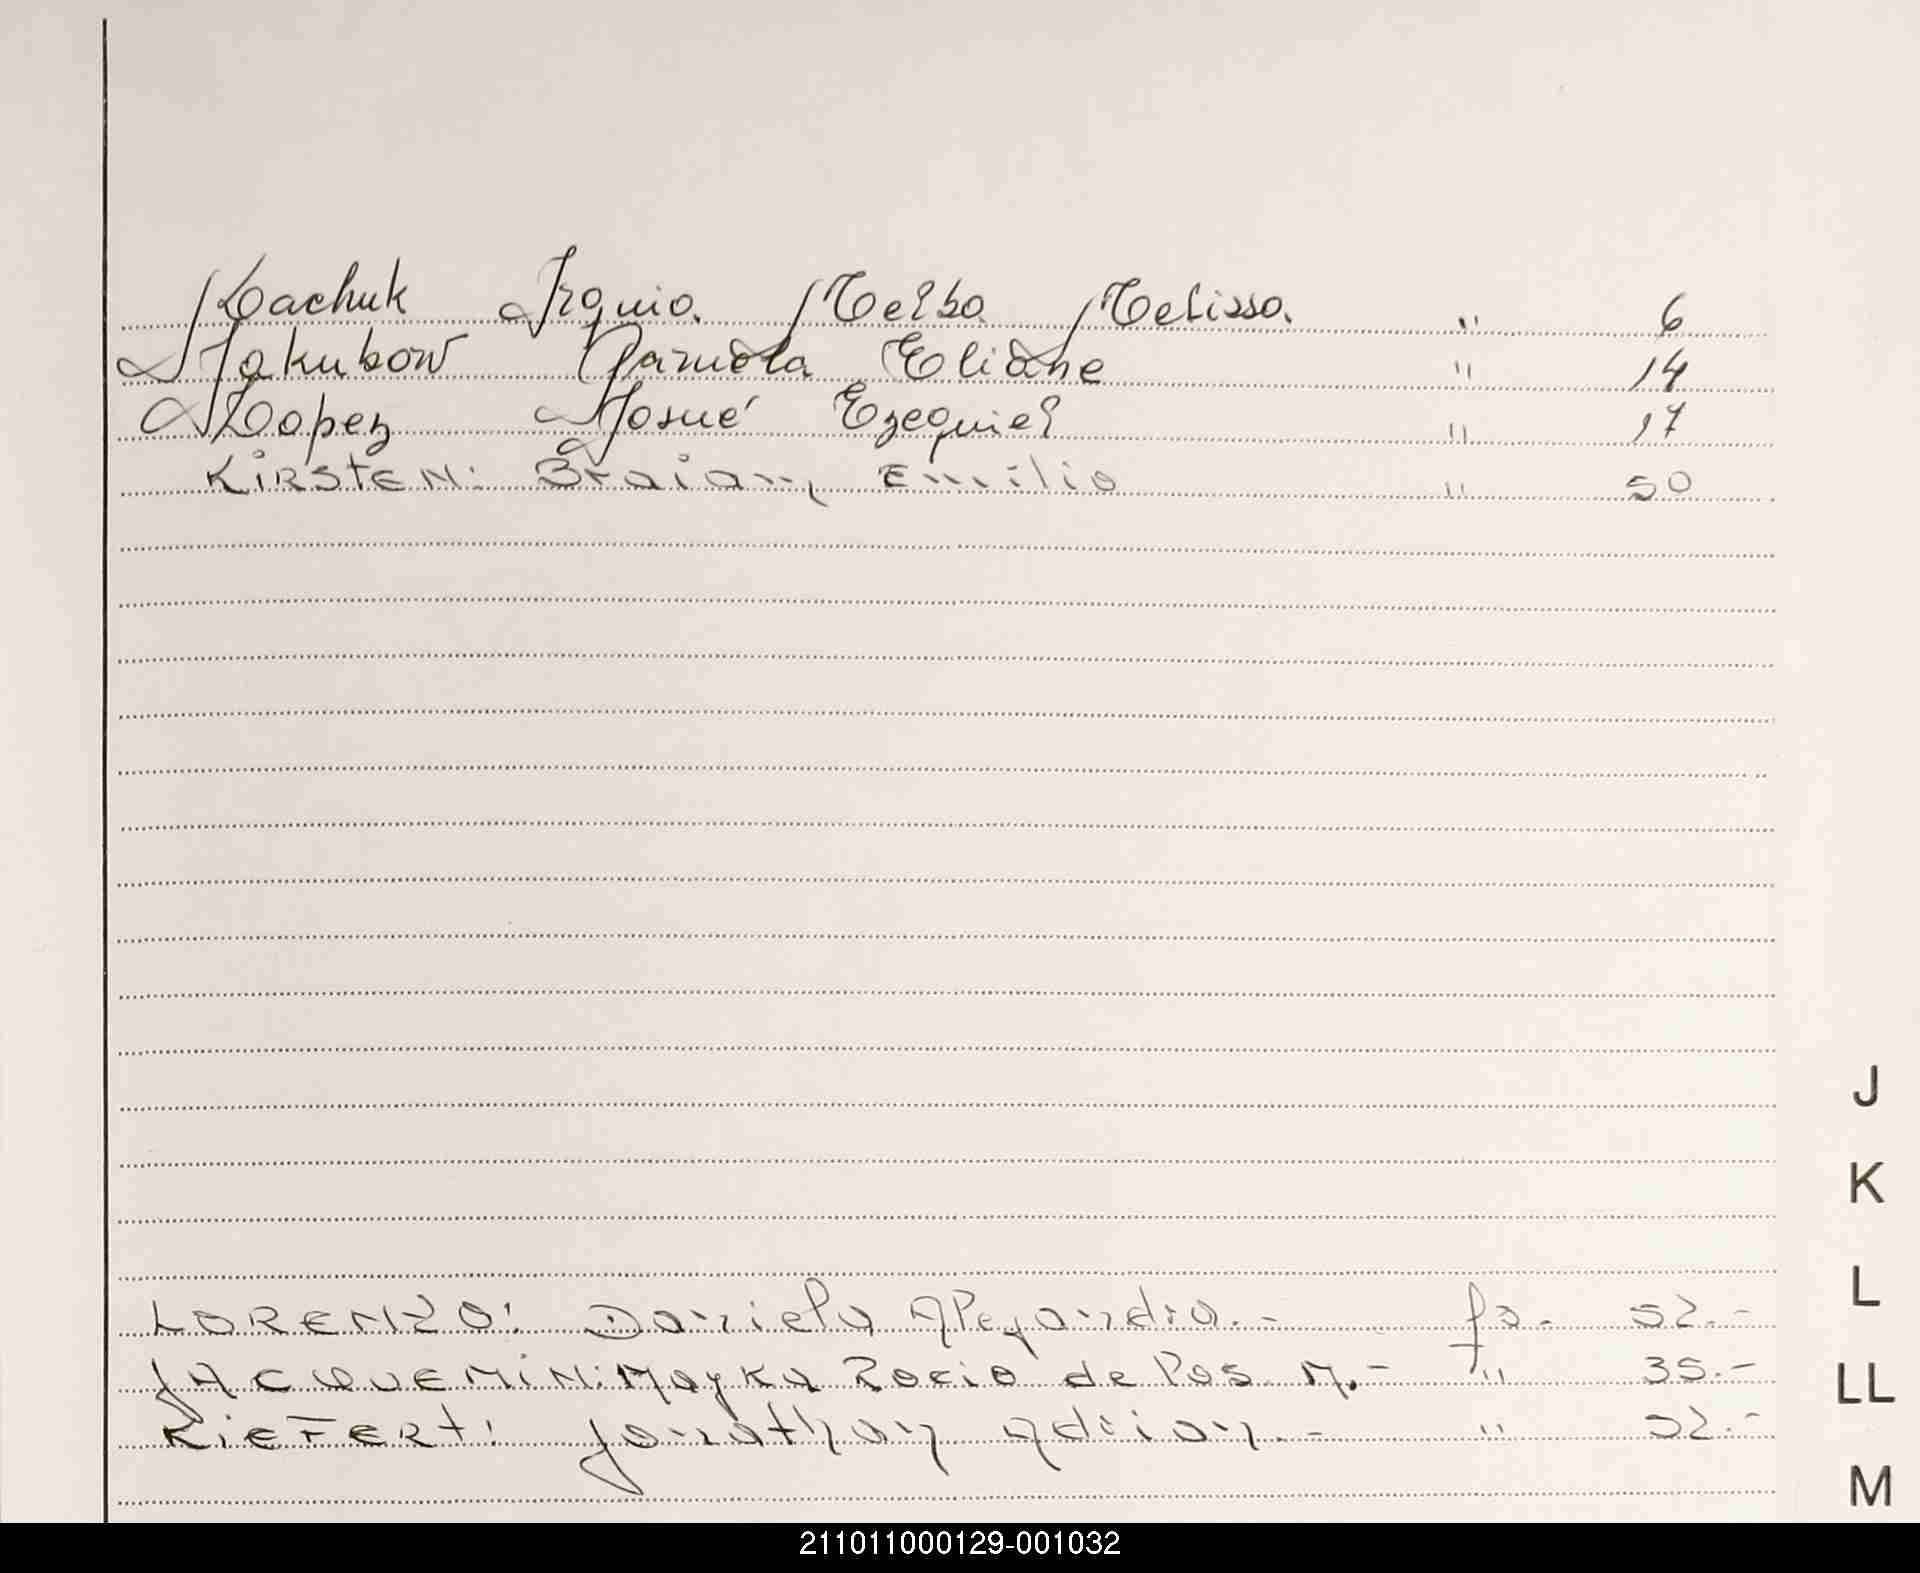 Kachuk Melba Melissa. " 6
Jakubow Eliane " 14
Lopez Josué Ezequiel " 17
KIRSTEN: Braian, Emilio " 50
J
K
L
LORENZO: Daniela Alejandra.- fo. 52.-
LL
JACQUEMIN: Mayka Rocio de los M.- " 35.-
KIEFERt: Jonathan Adrian.- " 52.-
M
211011000129-001032